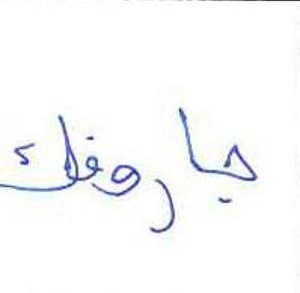 جاروفك